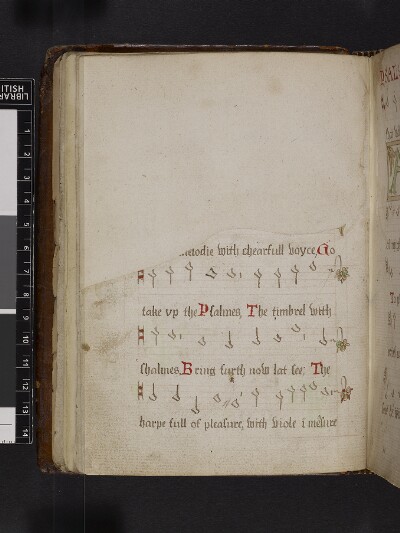 melodie with chearfull voyce, Go
take vp the Psalmes, The timbrel with
shalmes, Bring furth now lat see; The
harpe full of pleasure, with viole i mesure
PSAL
LIBRAR
ITISH
1
2
3
4
5
6
7
8
9
10
11
12
13
14